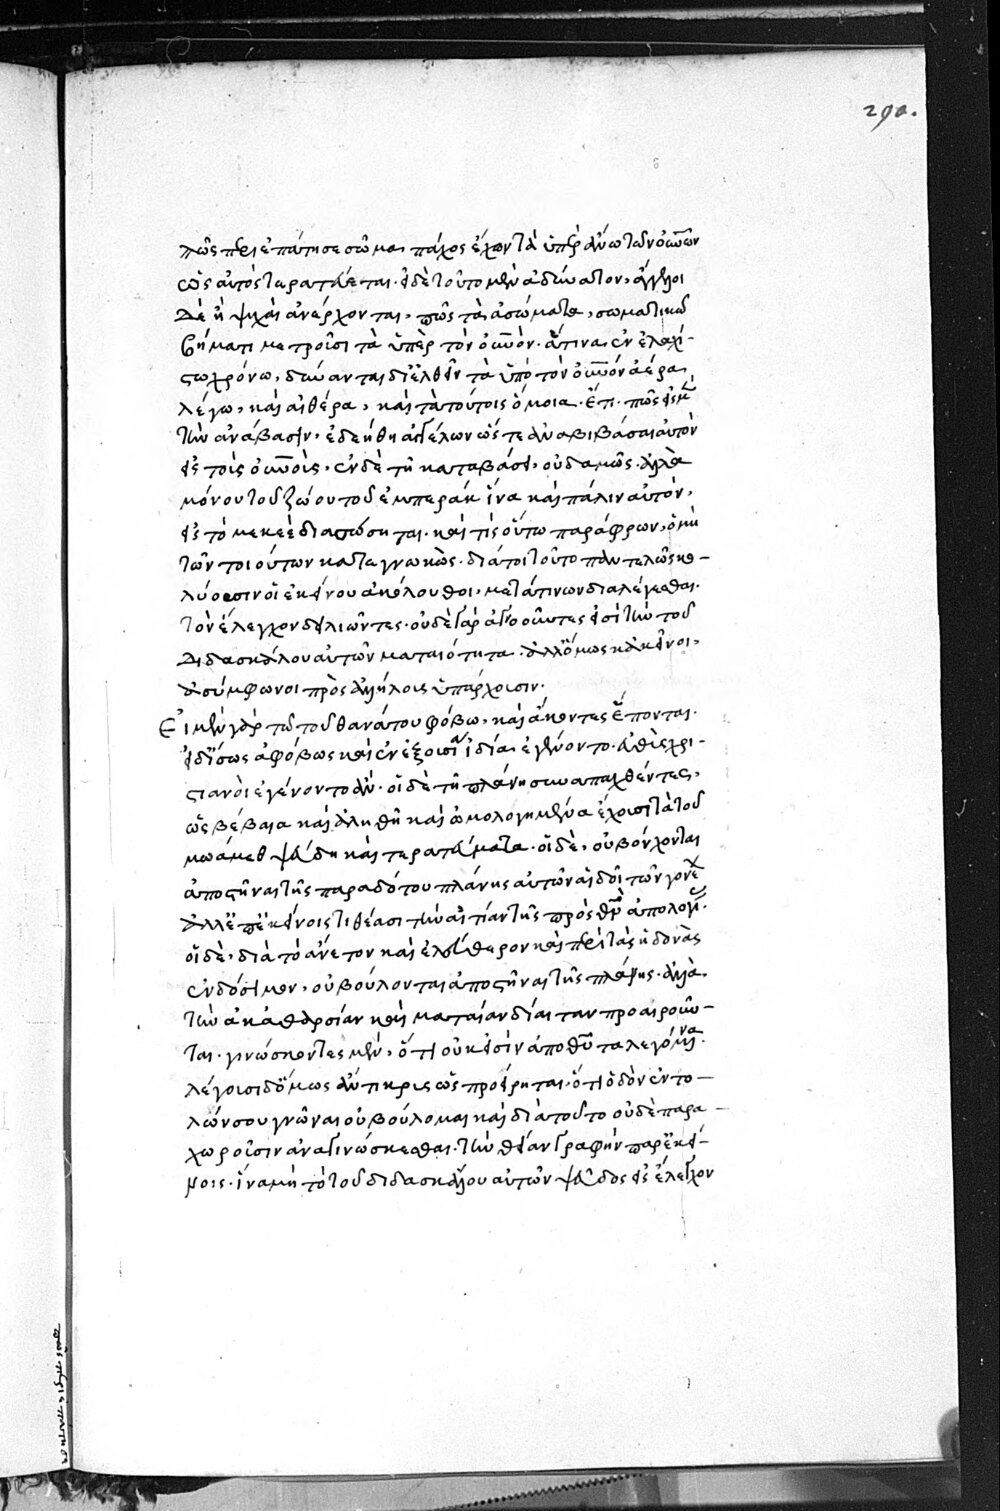 290.
πῶς περιεπάτησε σῶμα πάχος ἔχον τὰ ὑπεράνω τῶν οὐνῶν
ὡς αὐτὸς τερατεύεται. εἰ δὲ τοῦτο μὲν ἀδύνατον, ἄγγελοι
δὲ ἢ ψυχαὶ ἀνέρχονται, πῶς τὰ ἀσώματα, σωματικῶ
βήματι μετροῦσι τὰ ὑπὲρ τὸν οὐνόν. ἅτινα ἐν ἐλαχί-
στω χρόνω, δύνανται διελθεῖν τὰ ὑπὸ τὸν οὐνὸν ἀέρα
λέγω, καὶ αἰθέρα, καὶ τὰ τούτοις ὅμοια. ἔτι πῶς εἰς μὲν
τὴν ἀνάβασιν, ἐδεήθη ἀγγέλων ὥστε ἀναβιβάσαι αὐτὸν
εἰς τοὺς οὐνοὺς, ἐν δὲ τῆ καταβάσει, οὐδαμῶς. ἀλλὰ
μόνου τοῦ ζώου τοῦ ἐλμπαρὰκ ἵνα καὶ πάλιν αὐτὸν,
εἰς τὸ μεκὲ διασώσηται. καὶ τίς οὕτω παράφρων, ὁ μὴ
τῶν τοιούτων καταγνωκὼς. διάτοι τοῦτο παντελῶς κω-
λύουσιν οἱ ἐκείνου ἀκόλουθοι, μετά τινων διαλέγεσθαι.
τὸν ἔλεγχον δειλιῶντες. οὐδὲ γὰρ ἀγνοοῦντες εἰσὶ τὴν τοῦ
διδασκάλου αὐτῶν ματαιότητα. ἀλλ' ὅμως κἀκεῖνοι,
ἀσύμφωνοι πρὸς ἀλλήλους ὑπάρχουσιν.
Εἰ μὲν γὰρ τῶ τοῦ θανάτου φόβω, καὶ ἄκοντες ἕπονται.
εἰ δ' ἴσως ἀφόβως καὶ ἐν ἐξουσία ἰδία ἐγένοντο. εὐθὺς χρι-
στιανοὶ ἐγένοντο ἄν. οἱ δὲ τῆ πλάνη συναπαχθέντες,
ὡς βέβαια καὶ ἀληθῆ καὶ ὡμολογημένα ἔχουσι τὰ τοῦ
μωάμεθ ψευδῆ καὶ τερατεύματα. οἱ δὲ, οὐ βούλονται
ἀποστῆναι τῆς παραδότου πλάνης αὐτῶν αἰδοῖ τῶν γονέων
ἀλλ' ἐπ' ἐκείνοις τιθέασι τὴν αἰτίαν τῆς πρὸς θν ἀπολογίας.
οἱ δὲ, διὰ τὸ ἄνετον καὶ ἐλεύθερον καὶ περὶ τὰς ἡδονὰς
ἐνδόσιμον, οὐ βούλονται ἀποστῆναι τῆς πλάνης. ἀλλὰ
τὴν ἀκαθαρσίαν καὶ ματαίαν δίαιταν προαιροῦν-
ται. γινώσκοντες μὲν, ὅτι οὐκ εἰσὶν ἀπὸ θυ τὰ λεγόμενα.
λέγουσι δ' ὅμως ἄντικρυς ὡς προείρηται, ὅτι ὁδὸν ἐντο-
λῶν σου γνῶναι οὐ βούλομαι καὶ διὰ τοῦτο οὐδὲ παρα-
χωροῦσιν ἀναγινώσκεσθαι τὴν θείαν γραφὴν παρ' ἐκεί-
νοις. ἵνα μὴ τὸ τοῦ διδασκάλου αὐτῶν ψεῦδος εἰς ἔλεγχον